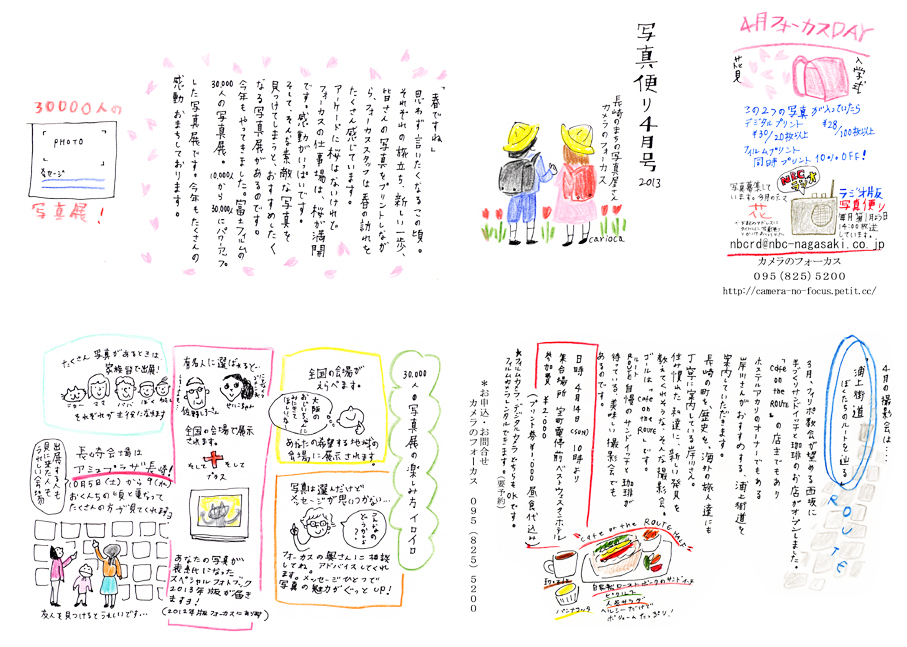 写真便り4月号
2013
長崎のまちの写真屋さん
カメラのフォーカス
carioca
4月フォーカスDAY
入学式
花見
この2つの写真が入っていたら
デジタルプリント
¥30/20枚以上
¥28/100枚以上
フィルムプリント
同時プリント 10% OFF!
NBCラジオ
ラジオ版
写真便り
14:00放送
しています。
写真募集して
います。今月のテーマ
花
nbcrd@nbc-nagasaki.co.jp
カメラのフォーカス
095(825)5200
http://camera-no-focus.petit.cc/
「春ですね」
思わず言いたくなるこの頃。
それぞれの旅立ち、新しい一歩、
皆さんの写真をプリントしなが
ら、フォーカススタッフは春の訪れを
たくさん感じています。
アーケードに桜はないけれど
フォーカスの仕事場は、桜が満開
です。感動がいっぱいです。
そして、そんな素敵な写真を
見つけてしまうと、おすすめしたく
なる写真展があるのです。
今年もやってきました。富士フイルムの
30,000人の写真展。10,000から30,000人にパワーアップ
した写真展です。今年もたくさんの
感動おまちしております。
30000人の
PHOTO
メッセージ
写真展!
4月の撮影会は....
浦上街道
ぼくたちのルートを辿る
ROUTE
3月、フィリポ教会が望める西坂に
手づくりサンドイッチと珈琲のお店がオープンしました。
「cafe on the ROUTE」の店主でもあり
ホステルアカリのオーナーでもある
岸川さんがおすすめする、浦上街道を
案内していただきます。
長崎の町を、歴史を、海外の旅人達にも
丁寧に案内している岸川さん。
住み慣れた私達に、新しい発見を
教えてくれそうな、そんな撮影会。
ゴールは、「cafe on the ROUTE」です。
ROUTE自慢のサンドイッチと珈琲が
待っている、美味しい撮影会でも
あるのです。
日時 4月14日(SUN) 10時より
集合場所 宝町電停前 ベストウェスタンホテル
参加費 ¥2,000
(プリント券¥1,000 昼食代込み)
※フィルムカメラ、デジタルカメラどちらもOKです。
フィルムカメラレンタルできます。(要予約)
＊お申込・お問合せ
カメラのフォーカス 095(825)5200
Cafe on the ROUTE
自家製ローストポークのサンドイッチ
ピクルス
人参サラダ
ヘルシーだけど
ボリュームたっぷり!
パンナコッタ
30,000人の写真展の楽しみ方イロイロ
全国の会場が
えらべます。
大阪の
おじいちゃんに
みてほしいな
あなたの希望する地域の
会場に展示されます。
写真は選んだけど
メッセージが思いつかない...
フォーカスの奥さんに相談
してね。アドバイスしてくれ
ます。メッセージひとつで
写真の魅力がぐっとUP!
有名人に選ばれると...
全国の会場で展示
されます。
そして
そして
プラス
あなたの写真が
表紙になった
スペシャルフォトブック
2013年版が届き
ますヨ!
(2012年版フォーカスに有り)
たくさん写真があるときは
家族皆で出展!
ママ
パパ
ぼく
それぞれが主役になります
出展する人も
見に来た人も
うれしい会場
長崎会場は
アミュプラザ長崎!
10月5日(土)から9(水)
おくんちの頃と重なって
たくさんの方が見てくれます。
友人を見つけるとうれしいです...